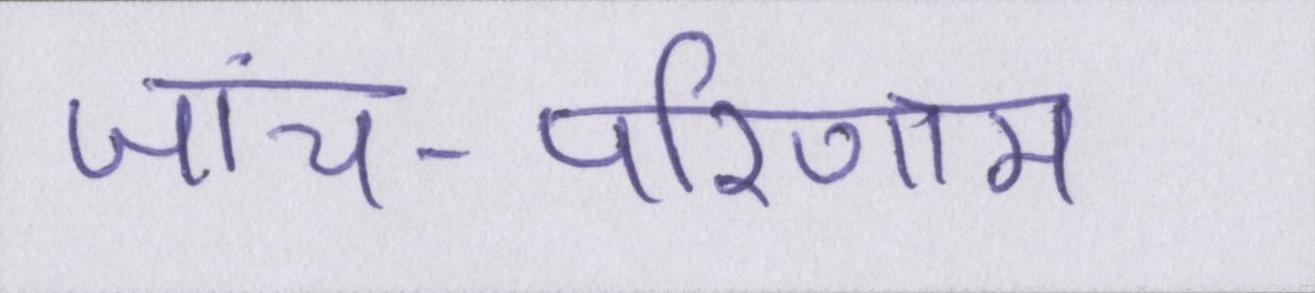 जांच-परिणाम